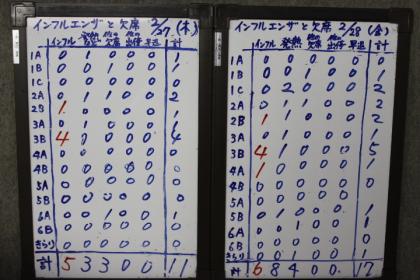 インフルエンザと欠席 2/27 (木)
インフル 発熱 他の欠席 他の出停 早退 計
1A 0 1 0 0 0 1
1B 0 0 1 0 0 1
1C 0 0 0 0 0 0
2A 0 1 1 0 0 2
2B 1 0 0 0 0 1
3A 0 0 1 0 0 1
3B 4 0 0 0 0 4
4A 0 0 0 0 0 0
4B 0 0 0 0 0 0
5A 0 0 0 0 0 0
5B 0 0 0 0 0 0
6A 0 1 0 0 0 1
6B 0 0 0 0 0 0
きらり 0 0 0 0 0 0
計 5 3 3 0 0 11
インフルエンザと欠席 2/28 (金)
インフル 発熱 他の欠席 他の出停 早退 計
1A 0 1 0 0 0 1
1B 0 0 1 0 0 1
1C 0 2 0 0 0 2
2A 0 1 1 0 0 2
2B 1 1 0 0 0 2
3A 0 1 0 0 0 1
3B 4 1 0 0 0 5
4A 1 0 0 0 0 1
4B 0 0 0 0 0 0
5A 0 0 0 0 0 0
5B 0 1 0 0 0 1
6A 0 0 1 0 0 1
6B 0 0 0 0 0 0
きらり 0 0 1 0 0 1
計 6 8 4 0 0 17